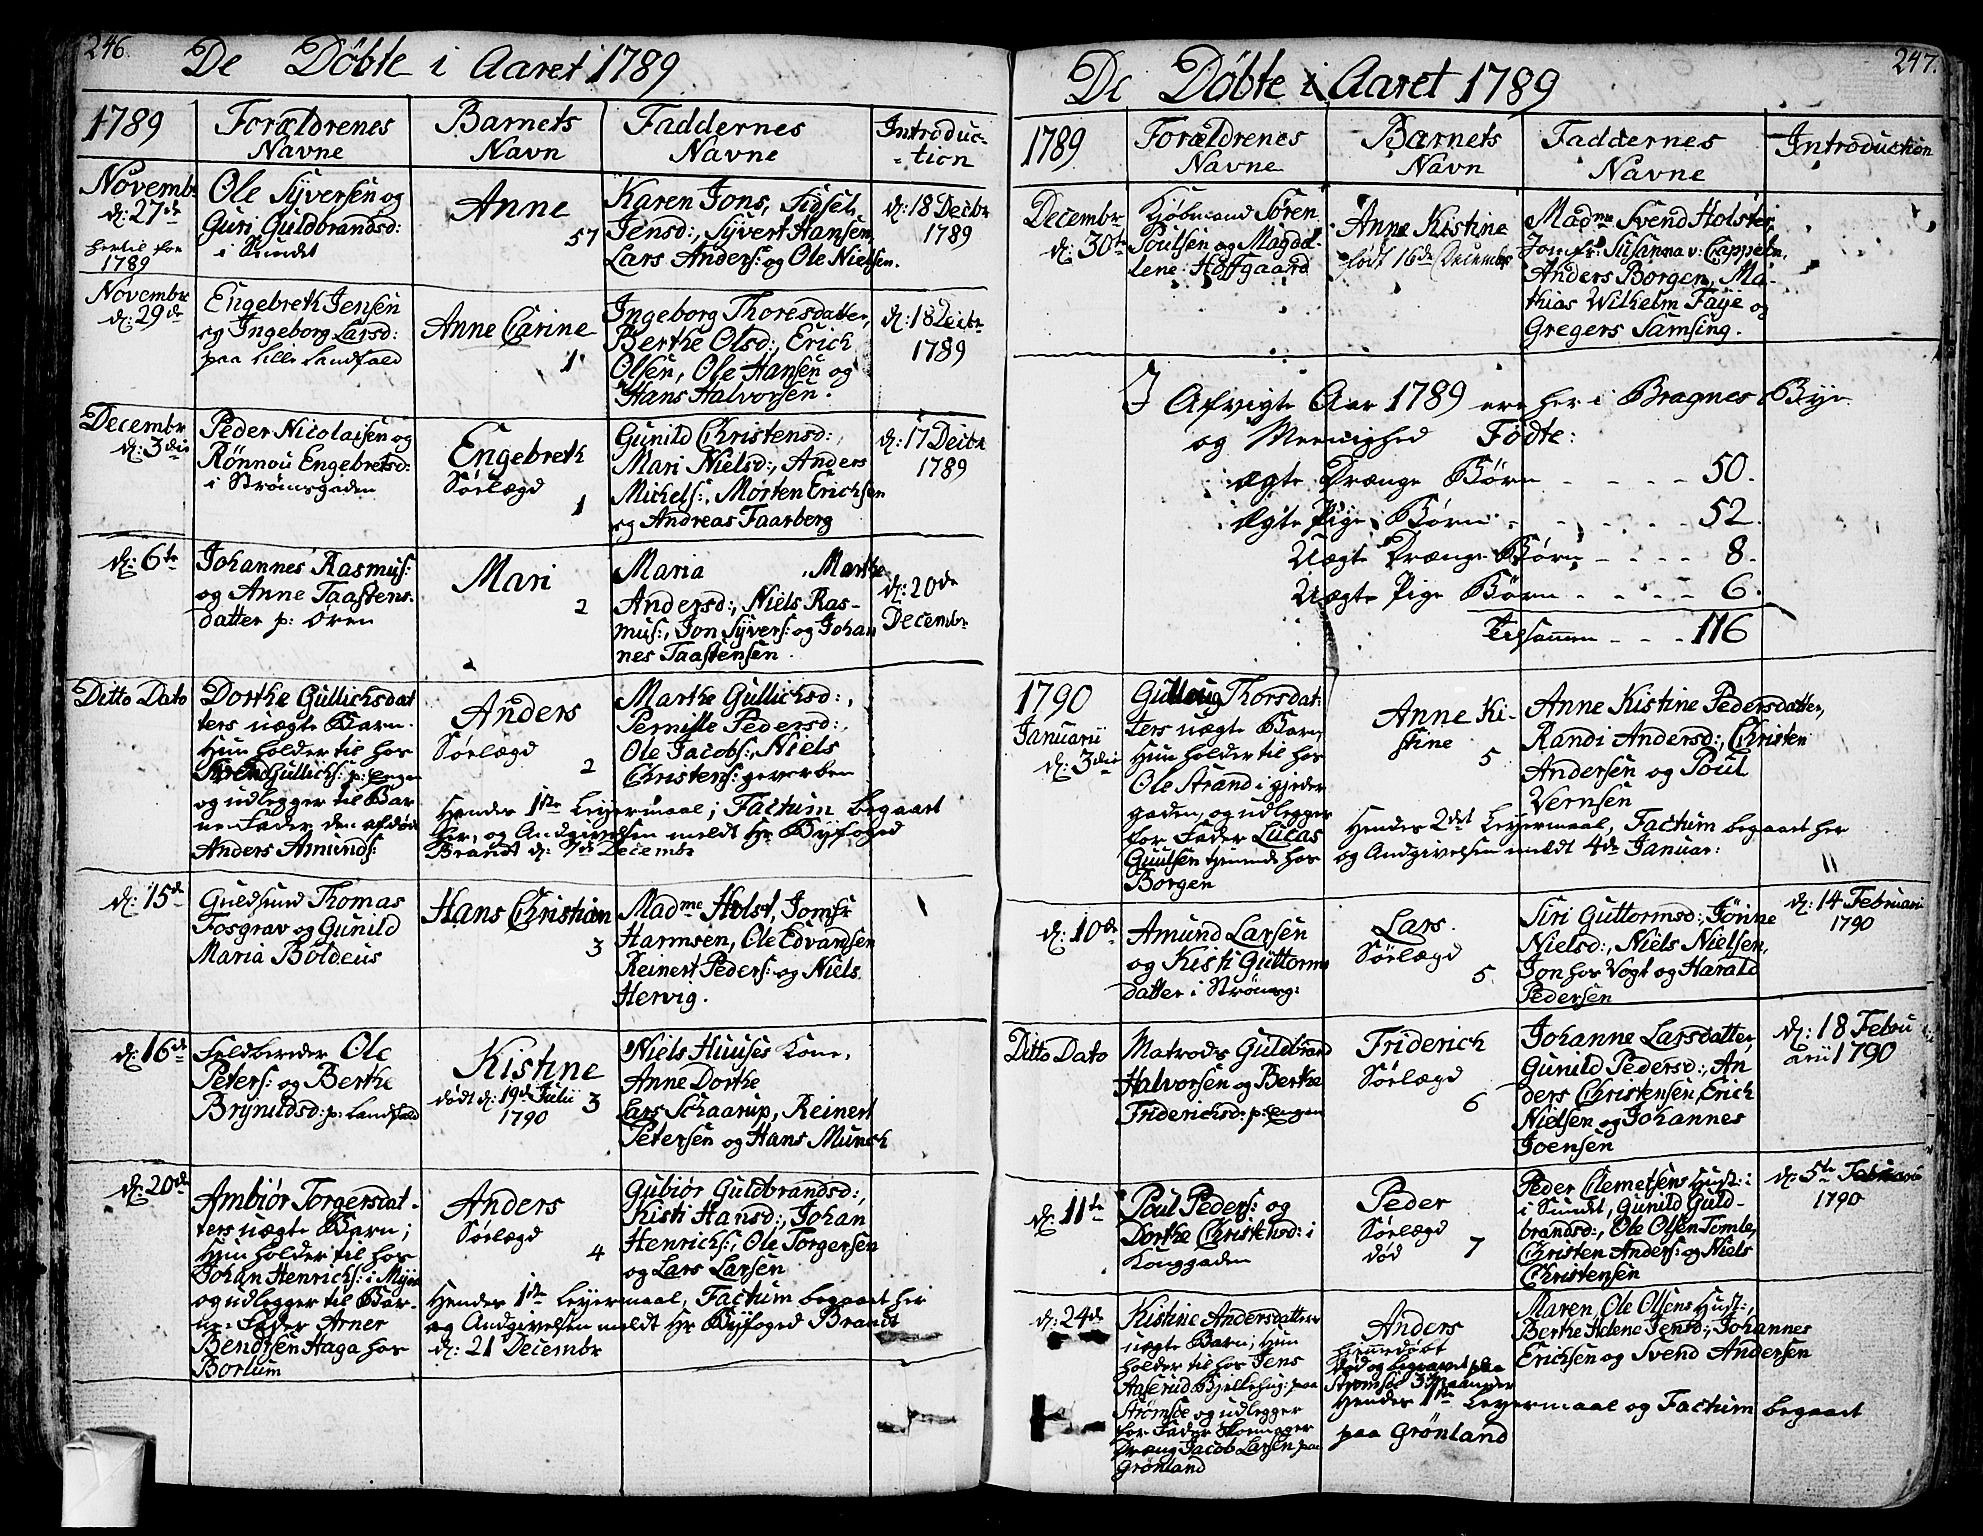 246.
De Döbte i Aaret 1789
1789
Forældrenes
Navne
Barnets
Navn
Faddernes
Navne
Introduc-
-tion
Novembr
d: 27de
1789
Ole Syversen og
Guri Guldbrandsd:
i Sundet
Anne
57
Karen Jons, Sidsel
Jensd:, Syvert Hansen,
Lars Anders: og Ole Nielsen.
d: 18 Decbr
1789
Novembr
d: 29de
Engebreth Jensen
og Ingeborg Larsd:
paa Lille Landfald
Anne Carine
1
Ingeborg Thoresdatter,
Berthe Olsd:, Erich
Olsen, Ole Hansen og
Hans Halvorsen.
d: 18 Decbr
1789
Decembr
d: 3die
Peder Nicolaisen og
Rönnou Engebretsd:
i Strömsgaden
Engebreth
Sörlægd
1
Gunild Christensd:,
Mari Nielsd:, Anders
Michels:, Morten Erichsen
og Andreas Faarberg
d: 17 Decbr
1789
d: 6te
Johannes Rasmus:
og Anne Taastens-
datter p: Ören
Mari
2
Maria Marthe
Andersd:, Niels Ras-
mus:, Jon Syvers: og Johan
nes Taastensen.
d: 20de
Decembr
Ditto Dato
Dorthe Gullichsdat
ters uægte Barn.
Hun holder til hos
Svend Gullichs: p: Engen
og udlegger til Bar-
ne-Fader den afdöde
Anders Amunds:
Anders
Sörlægd
2
Marthe Gullichsd:,
Pernille Pedersd:,
Ole Jacobs:, Niels
Christens: geverben
Hendes 1ste Leyermaal; Factum begaaet
her, og Andgivelsen meldt Hr Byfoged
Brandt d: 7de Decembr
d: 15de
Guldsmed Thomas
Fosgrav og Gunild
Maria Boldeus
Hans Christian
3
Madme Holst, Jomfr
Harmsen, Ole Edvardsen
Reinert Peders: og Niels
Hervig.
d: 16de
Feldbereder Ole
Peters: og Berthe
Brynildsd: p: Landfald
Kistine
död d: 19de Julii
1790
3
Niels Huuses Kone,
Anne Dorthe
Lars Schaarup, Reinert
Petersen og Hans Munch
d: 20de
Ambiör Torgersdat-
ters uægte Barn;
Hun holder til hos
Johan Henrichs: i Myra
og udlegger til Bar-
ne-Fader Arner
Bendtsen Haga hos
Borlum
Anders
Sörlægd
4
Gubiör Guldbrandsd:,
Kisti Hansd:, Johan
Henrichs:, Ole Torgersen
og Lars Larsen
Hendes 1ste Leyermaal, Factum begaaet her
og Andgivelsen meldt Hr Byfoged Brandt
d: 21 Decembr
247.
De Döbte i Aaret 1789
1789
Forældrenes
Navne
Barnets
Navn
Faddernes
Navne
Introduction
Decembr
d: 30te
Kjöbmand Sören
Poulsen og Magda-
lene Hoffgaard
Anne Kistine
född 16de Decembr
Madme Svend Holster,
Jomfr: Susanna v: Cappelen,
Anders Borgen, Ma-
thias Wilhelm Faye og
Gregers Samsing.
I Afvigte Aar 1789 ere her i Bragnes Bye
og Meenighed Födte:
ægte Drænge Börn - - - - 50.
ægte Pige Börn - - - - 52.
Uægte Drænge Börn - - - - 8.
Uægte Pige Börn - - - - 6.
Tilsammen - - - 116
1790
Januarii
d: 3die
Gulloug Thorsdat-
ters uægte Barn,
Hun holder til hos
Ole Strand i Gjeder
gaden, og udlegger
for Fader Lucas
Guulsen tjenende hos
Borgen
Anne Ki-
stine
5
Anne Kistine Pedersdatter,
Randi Andersd:, Christen
Andersen og Poul
Vernsen
Hendes 2det Leyermaal, Factum begaaet her
og Andgivelsen meldt 4de Januar:
d: 10de
Amund Larsen
og Kisti Guttorms
datter i Strömsg:
Lars.
Sörlægd
5
Siri Guttormsd:, Jörine
Nielsd:, Niels Nielsen,
Jon hos Vogt og Harald
Pedersen
d: 14 Februarii
1790
Ditto Dato
Matros Guldbrand
Halvorsen og Berthe
Friderichsd: p: Engen
Friderich
Sörlægd
6
Johanne Larsdatter,
Gunild Pedersd:, An
ders Christensen, Erich
Nielsen og Johannes
Joensen
d: 18 Febru
arii 1790
d: 11te
Poul Peders: og
Dorthe Christensd: i
Konggaden
Peder
Sörlægd
död
7
Peder Clemetsens Hust: i
Sundet, Gunild Guld-
brandsd:, Ole Olsen Tomle,
Christen Anders: og Niels
Christensen
d: 5te Februarii
1790
d: 24de
Kistine Andersdatters
uægte Barn; Hun
holder til hos Jens
Aaserud Bjellehug: paa
Strömsöe og udlegger
for Fader
Dræng Jacob Larsen paa
Grönland
Anders
hjemmedöbt
död og begravet paa
Strömsöe
Maren Ole Olsens Hust:,
Berthe Helene Jensd:, Johannes
Erichsen og Svend Andersen
Hendes 1ste Leyermaal og Factum begaaet
paa Grönland